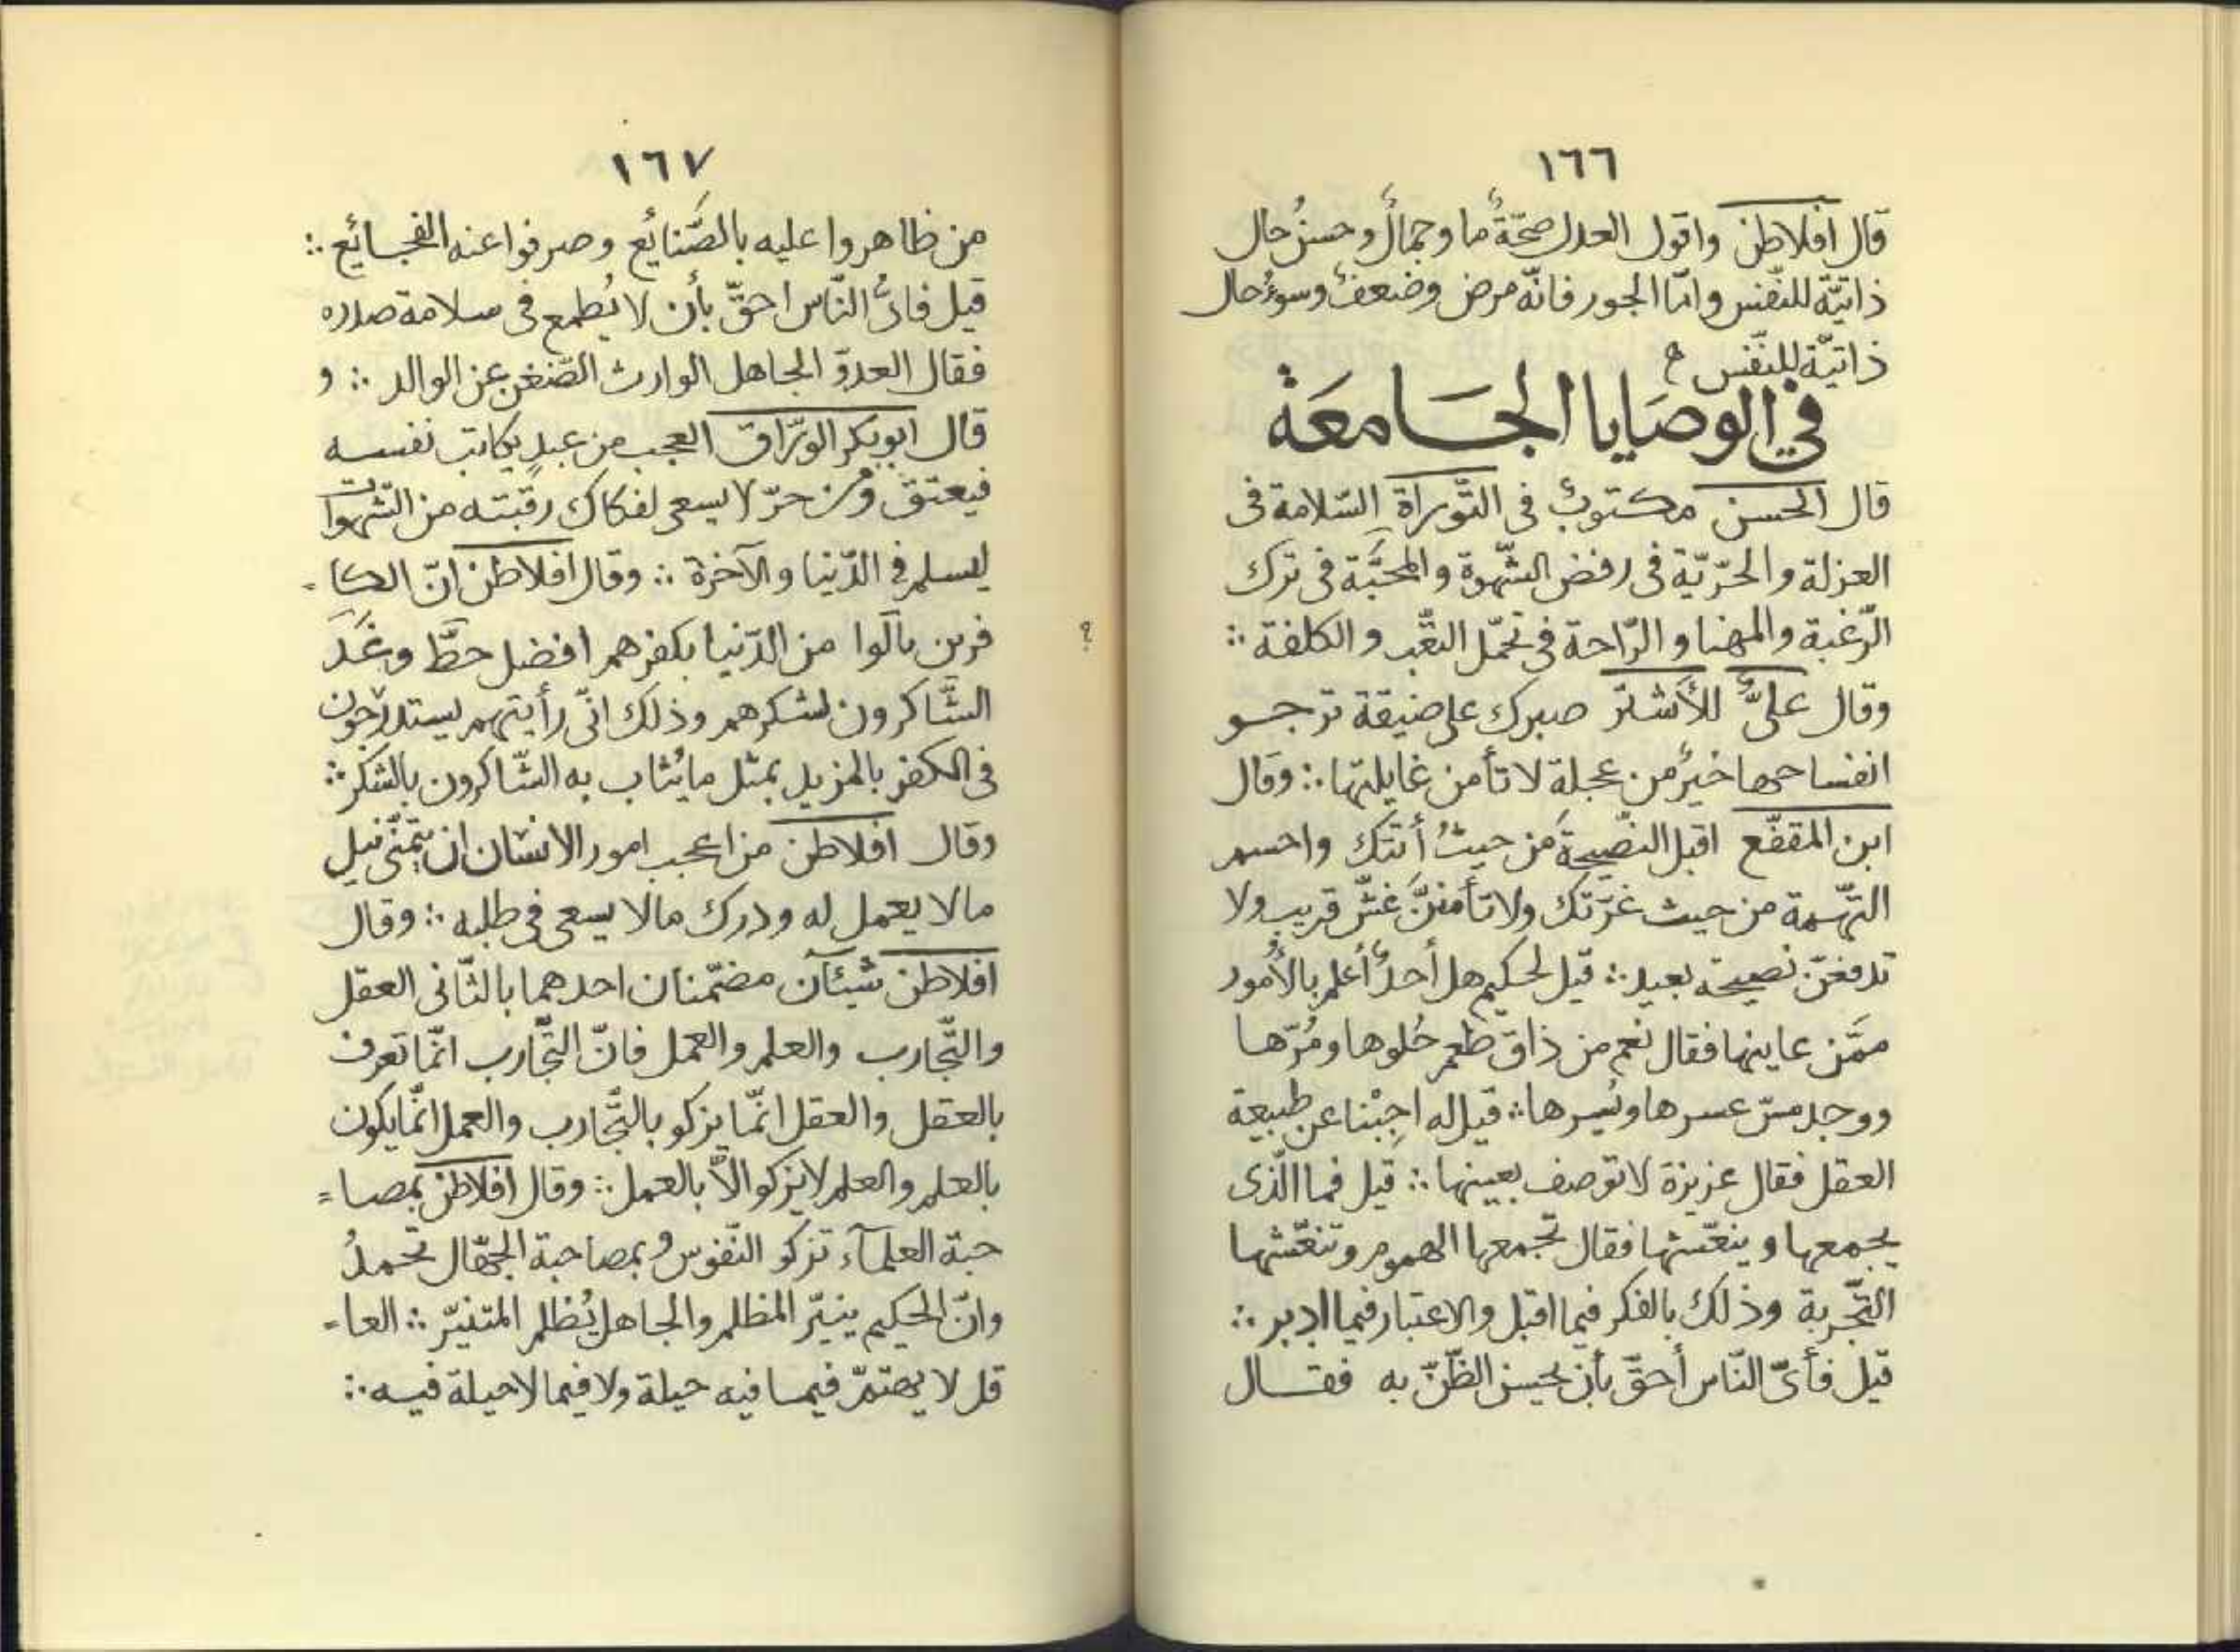 ١٦٦
قال افلاطن واقول العدل صحّةٌ ما وجمالٌ وحسنُ حال
ذاتيّة للنّفس وامّا الجور فانّه مرض وضعفٌ وسوءُ حال
ذاتيّة للنّفس ه
في الوصَايا الجَامعَة
قال الحسن مكتوبٌ فى التَّوراة السّلامة فى
العزلة والحرّيّة فى رفض الشّهوة والمحبَّة فى ترك
الرّغبة والمهنا و الرّاحة فى تحمّل التعّب و الكلفة ∴
وقال علىٌّ للأشتر صبرك على ضيقة ترجو
انفساحها خيرٌ من عجلة لا تأمن غايلتها ∴ وقال
ابن المقفّع اقبل النصّيحةَ من حيثُ أتتك واحسم
التّهمة من حيث غرّتك ولا تأمننَّ غشّ قريب ولا
تدفعنّ نصيحة بعيد ∴ قيل لحكيم هل أحدٌ أعلم بالأُمور
ممَّن عاينها فقال نعم من ذاق طعم حُلوها ومُرّها
ووجد مسّ عسرها ويُسرها ∴ قيل له اجِبْنا عن طبيعة
العقل فقال عزيزة لا توصف بعينها ∴ قيل فما الّذى
يجمعها و ينعّشها فقال تجمعها الهموم وتنعّشها
التّجربة وذلك بالفكر فيما اقبل والاعتبار فيما ادبر ∴
قيل فأىّ النّاس أحقّ بأن يحسن الظّنّ به فقال
١٦٧
من ظاهروا عليه بالصَّنايُع وصرفوا عنه الفجائع ∴
قيل فاىُّ النّاس احقّ بأن لا يُطمع فى سلامة صدره
فقال العدوّ الجاهل الوارث الضّغن عن الوالد ∴ و
قال ابوبكر الورّاق العجب من عبدٍ يكاتب نفسه
فيعتق ومن حرّ لا يسعى لفكاك رقبته من الشّهوات
ليسلم فى الدّنيا والآخرة ∴ وقال افلاطن انّ الكا =
فرين نالوا من الدّنيا بكفرهم افضل حظَّ وعَدَ
الشَّاكرون لشكرهم وذلك انّى رأيتهم يستدرجون
فى الكفر بالمزيد بمثل ما يُثاب به الشّاكرون بالشكر ∴
وقال افلاطن من اعجب امور الانسان ان يتمنّى نيل
مالا يعمل له ودرك مالا يسعى فى طلبه ∴ وقال
افلاطن شيئآن مضمّنان احدهما بالثّانى العقل
والتّجارب والعلم والعمل فانّ التّجارب انّما تعرف
بالعقل والعقل انّما يزكو بالتّجارب والعمل انّما يكون
بالعلم والعلم لا يزكو الاّ بالعمل ∴ وقال افلاطن بمصا =
حبة العلمآء تزكو النّفوس و بمصاحبة الجهّال تخمدُ
وانّ الحكيم ينيّر المظلم والجاهل يُظلم المتنيّر ∴ العا =
قل لا يهتمّ فيما فيه حيلة ولا فيما لا حيلة فيه ∴
؟